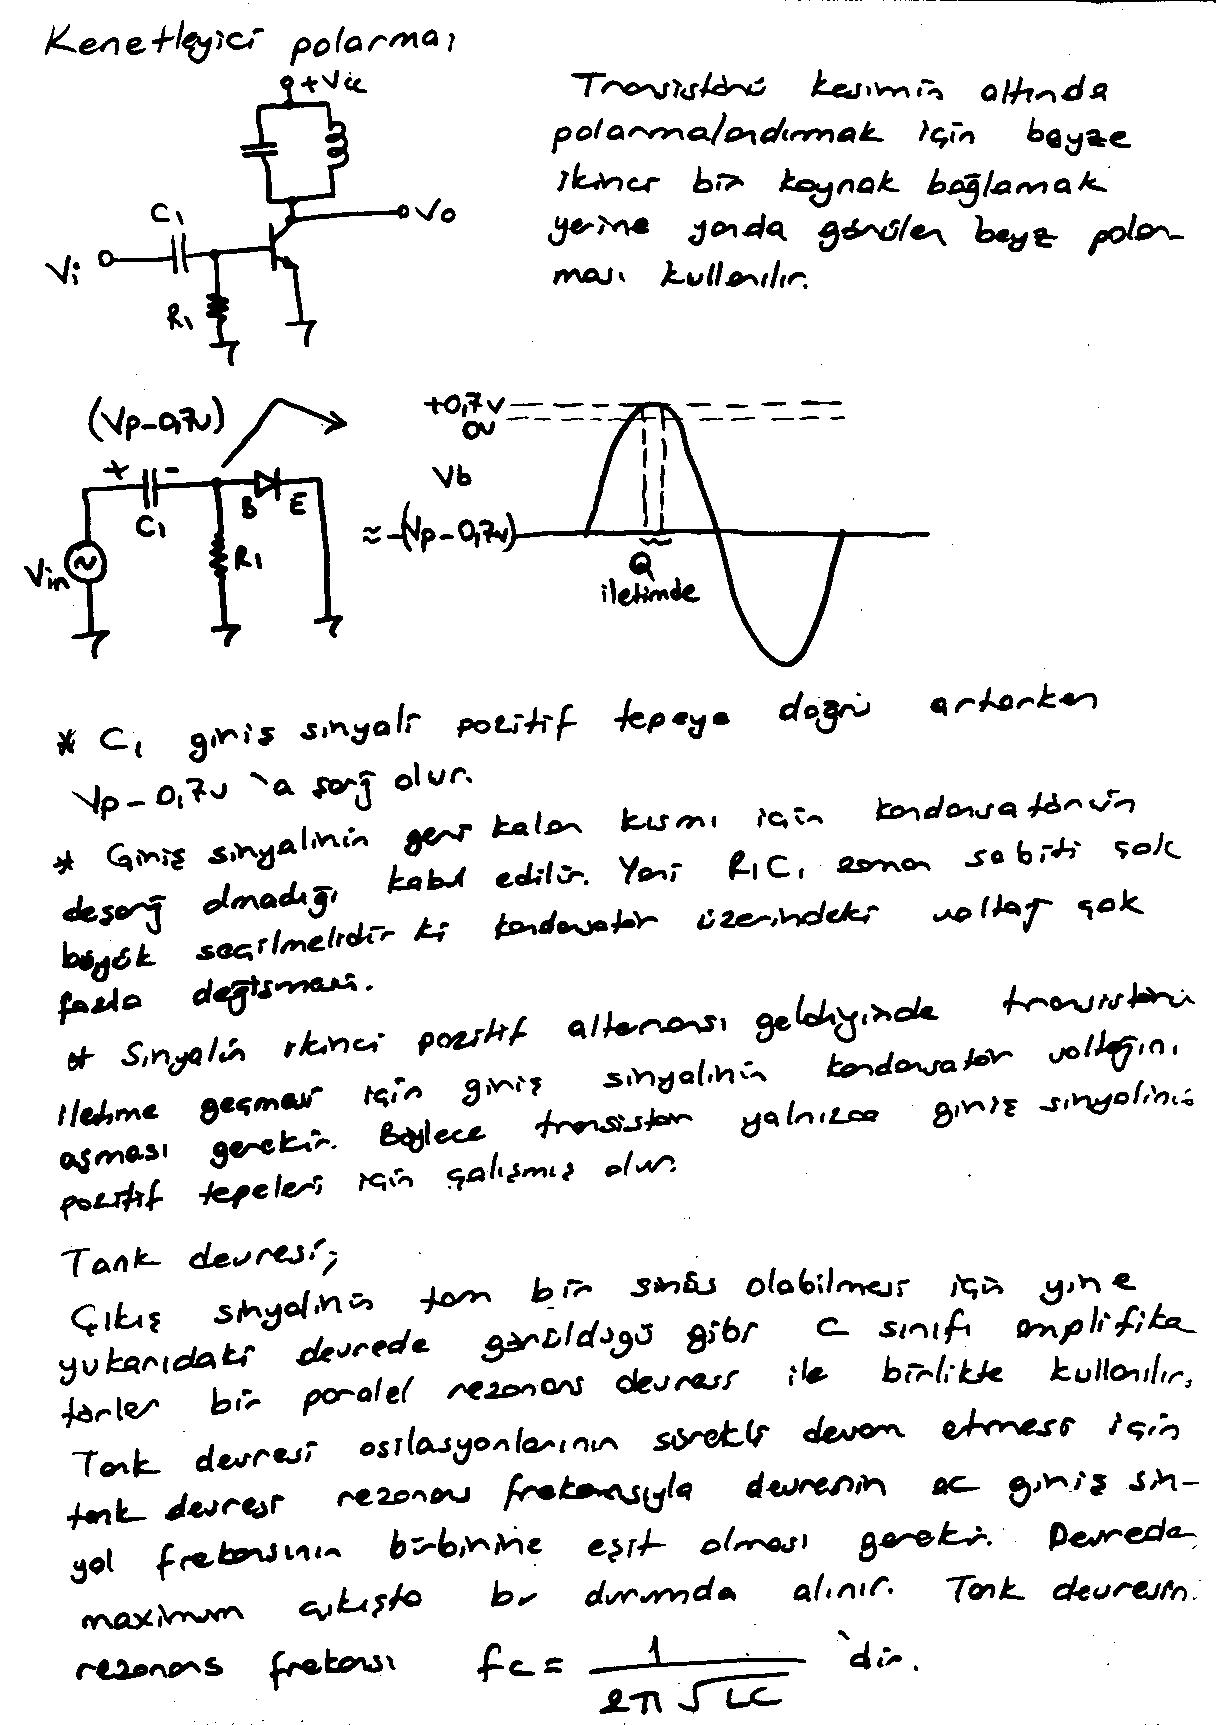 Kenetleyici polarması
+Vcc
Transistörü kesimin altında
polarmalandırmak için beyze
ikinci bir kaynak bağlamak
yerine yanda görülen beyz polar-
ması kullanılır.
C1
Vo
Vi
R1
(Vp-0,7v)
+0,7v
0v
Vb
≈-(Vp-0,7v)
+ -
C1
B E
R1
Vin
Q
iletimde
* C1 giriş sinyali pozitif tepeye doğru artarken
Vp-0,7v 'a şarj olur.
* Giriş sinyalinin geri kalan kısmı için kondansatörün
deşarj olmadığı kabul edilir. Yani R1C1 zaman sabiti çok
büyük seçilmelidir ki kondansatör üzerindeki voltaj çok
fazla değişmesin.
* Sinyalin ikinci pozitif alternansı geldiğinde transistörün
iletime geçmesi için giriş sinyalinin kondansatör voltajını
aşması gerekir. Böylece transistör yalnızca giriş sinyalinin
pozitif tepeleri için çalışmış olur.
Tank devresi;
Çıkış sinyalinin tam bir sinüs olabilmesi için yine
yukarıdaki devrede görüldüğü gibi C sınıfı amplifika
törler bir paralel rezonans devresi ile birlikte kullanılır,
Tank devresi osilasyonlarının sürekli devam etmesi için
tank devresi rezonans frekansıyla devrenin ac giriş sin-
yal frekansının birbirine eşit olması gerekir. Devrede
maximum çıkışta bu durumda alınır. Tank devresin.
rezonans frekansı fc = 1 / 2π √LC 'dir.